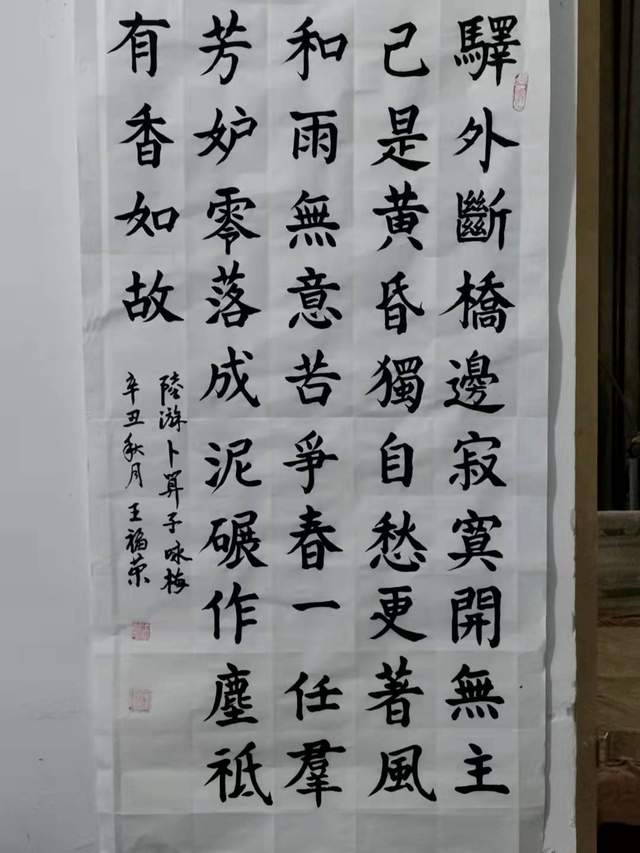 驛外斷橋邊寂寞開無主
己是黃昏獨自愁更著風
和雨無意苦爭春一任羣
芳妒零落成泥碾作塵祗
有香如故
陸游卜算子咏梅
辛丑秋月王福荣